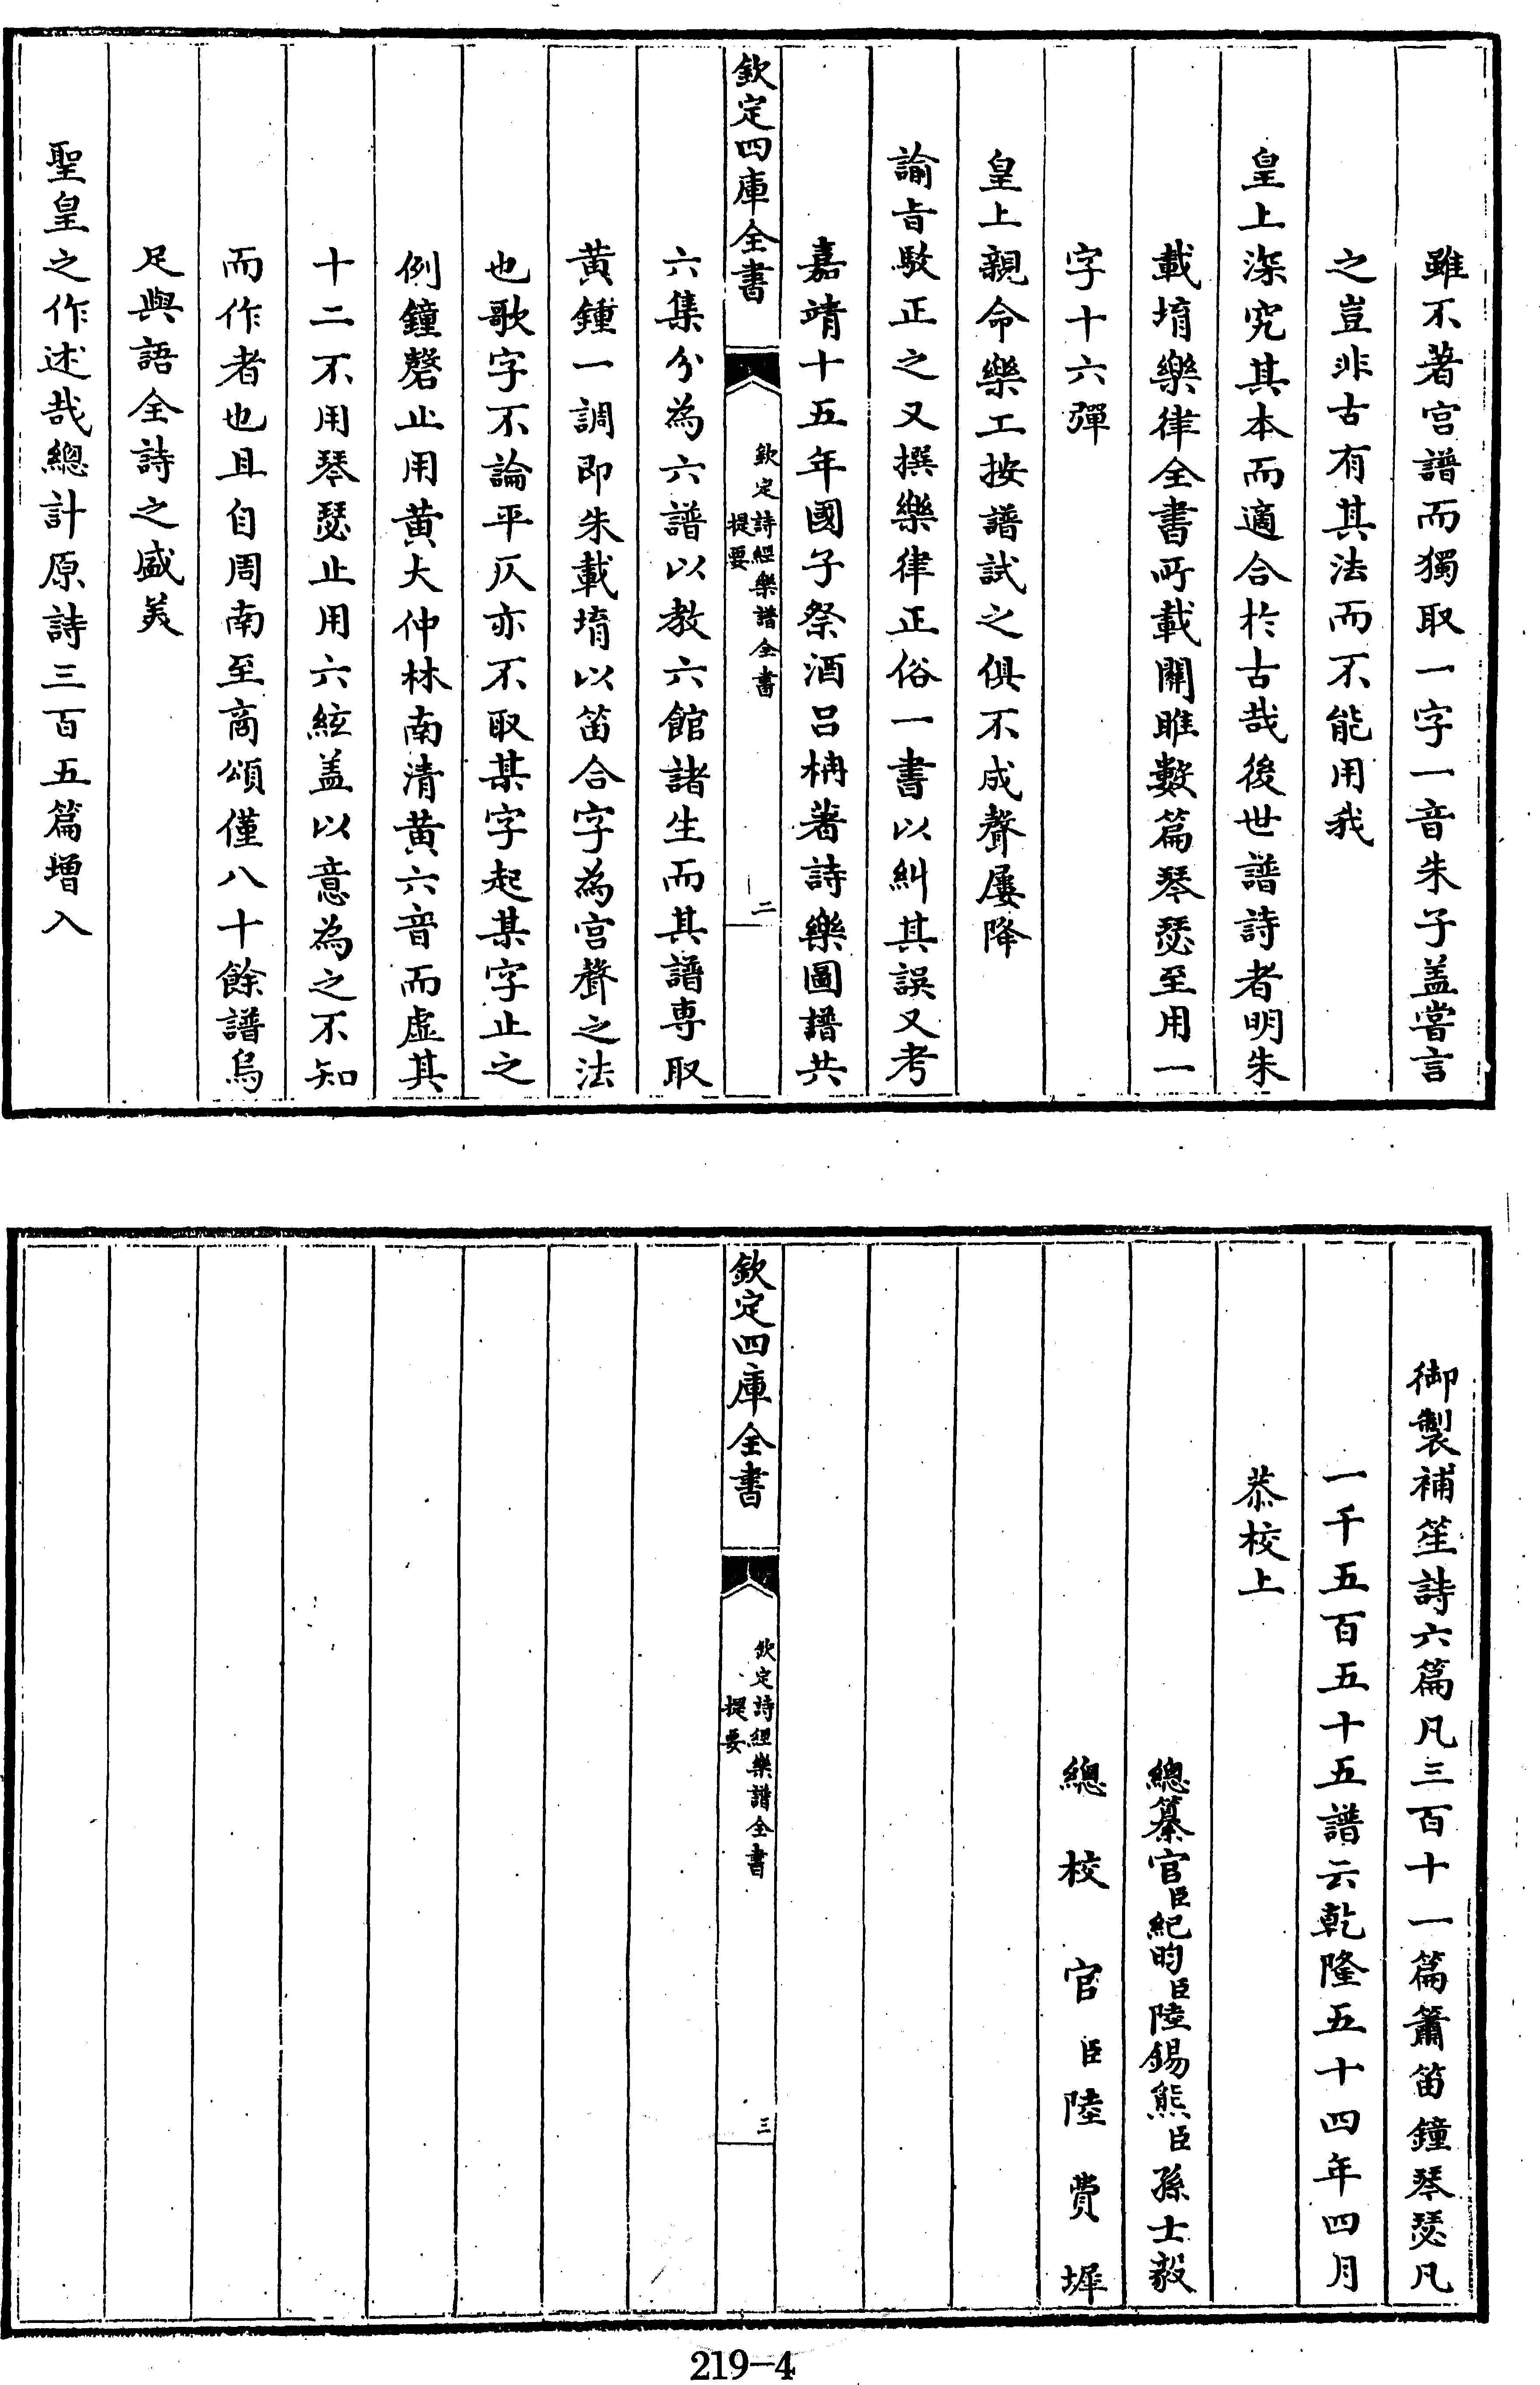 雖不著宫譜而獨取一字一音朱子盖嘗言
之豈非古有其法而不能用我
皇上深究其本而適合於古哉後世譜詩者明朱
載堉樂律全書所載關雎數篇琴瑟至用一
字十六彈
皇上親命樂工按譜試之俱不成聲屢降
諭旨駁正之又撰樂律正俗一書以糾其誤又考
嘉靖十五年國子祭酒吕柟著詩樂圖譜共
欽定四庫全書
欽定詩經樂譜全書
提要
二
六集分為六譜以教六館諸生而其譜専取
黄鍾一調即朱載堉以笛合字為宫聲之法
也歌字不論平仄亦不取某字起某字止之
例鐘磬止用黄大仲林南清黄六音而虚其
十二不用琴瑟止用六絃盖以意為之不知
而作者也且自周南至商頌僅八十餘譜烏
足與語全詩之盛美
聖皇之作述哉總計原詩三百五篇增入
御製補笙詩六篇凡三百十一篇簫笛鐘琴瑟凡
一千五百五十五譜云乾隆五十四年四月
恭校上
總纂官臣紀昀臣陸錫熊臣孫士毅
總校官臣陸費墀
欽定四庫全書
欽定詩經樂譜全書
提要
三
219-4